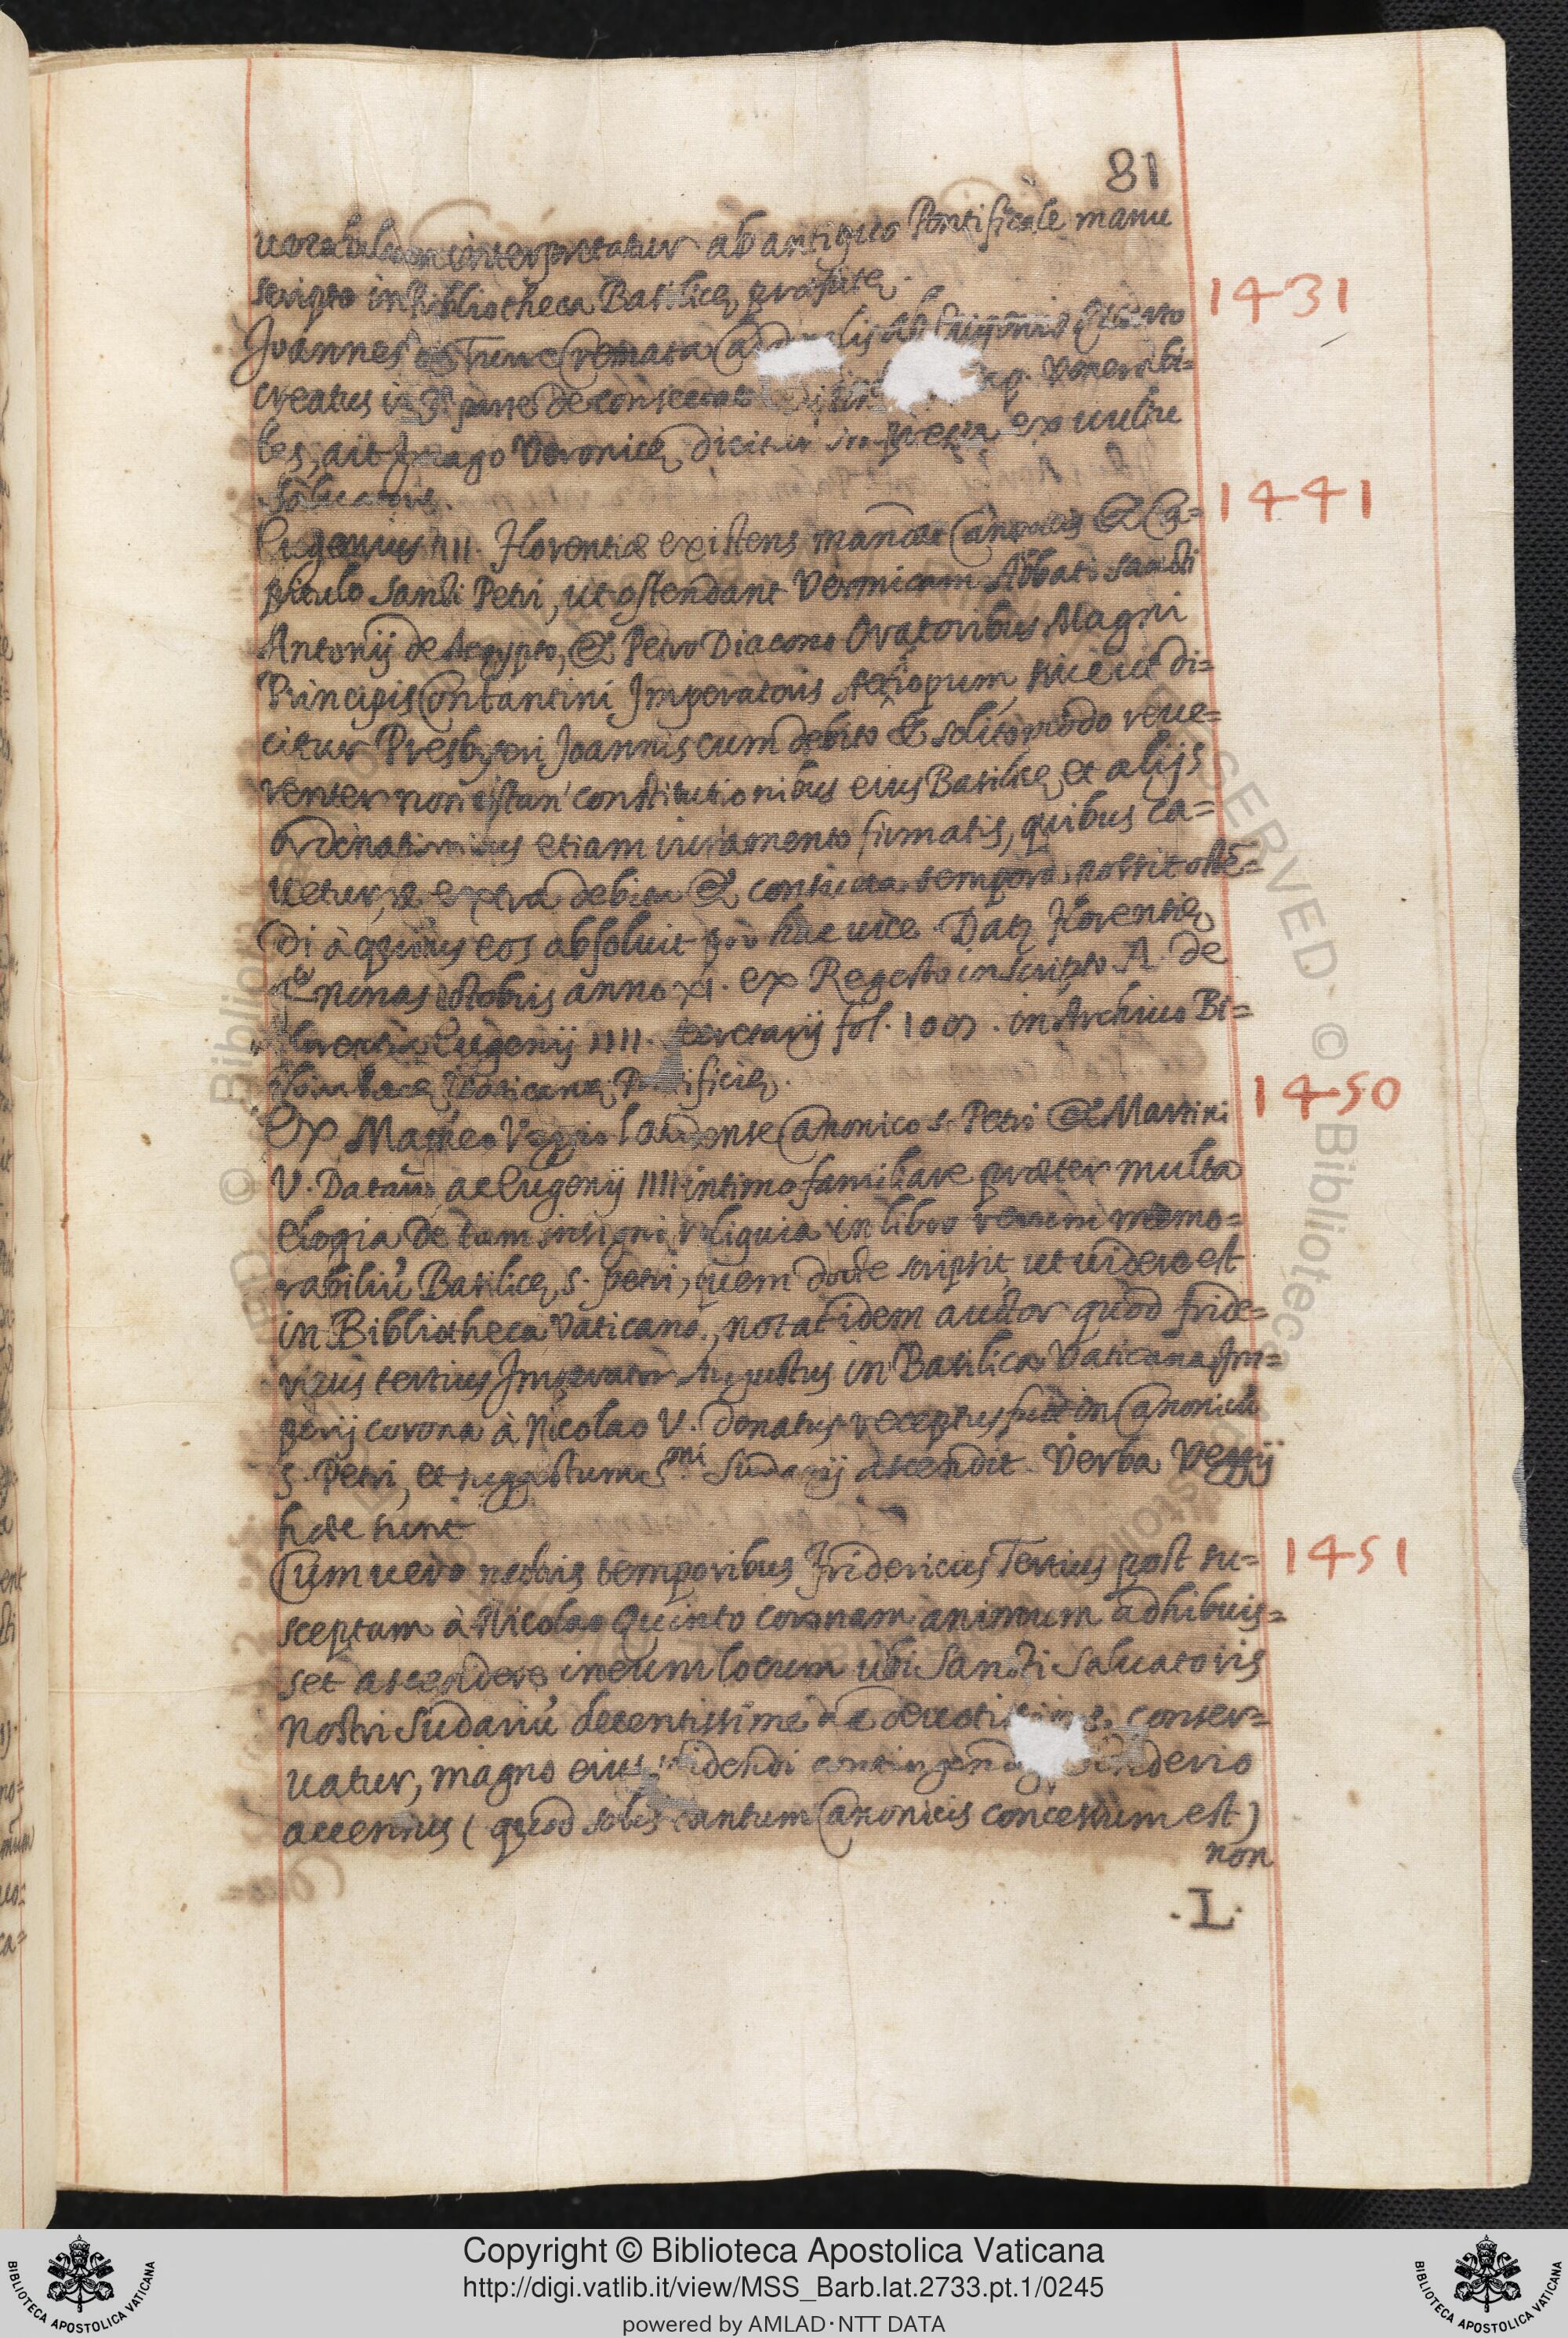 81
uocabulum interpretatur ab antiquo Pontificale manu
scripto in Bibliotheca Basilicę
1431
Joannes Turre Cremata ab Eugenio Quarto
creatus in 3ª parte de consecrat venerabi-
les, ait Imago Veronicę dicitur impressa ex uultu
Saluatoris.
1441
Eugenius IIII. Florentiæ existens mandat Canonicis & Ca-
pitulo Sancti Petri, ut ostendant Veronicam Abbati Sancti
Antonij de Aegypto, & Petro Diacono Oratoribus Magni
Principis Contantini Imperatoris Aethiopum, siue ut di-
citur Presbyteri Joannis cum debito & solito modo reue-
renter non constitutionibus eius Basilicę, et alijs
ordinationibus etiam iuramento firmatis, quibus ca-
uetur, ne extra debita & consueta tempora possit ostē-
di à quibus eos absoluit pro hac uice. Datę Florentię
nonas octobris anno XI. ex Regesto inscripto A. de
Florentia Eugenij IIII. secretarij fol. in Archiuo Bi-
bliothecę Vaticanę Pontificię.
1450
Ex Matheo Veggio laudense Canonico S. Petri & Martini
V. Datario ac Eugenij IIII intimo familiare præter multa
elogia de tam insigni reliquia in libro rerum memo-
rabiliū Basilicę S. Petri, quem docte scripsit, ut uidere est
in Bibliotheca Vaticana, notat idem auctor quod fride-
ricus tertius Imperator Augustus in Basilica Vaticana Im-
perij corona à Nicolao V. donatus receptus fuit in Canonicū
S. Petri, et suggestum Sudarij ascendit. Verba Veggij
hæc sunt
1451
Cum uero nostris temporibus Fridericus Tertius post su-
sceptam à Nicolao Quinto coronam animum adhibuis-
set ascendere in eum locum ubi Sancti Saluatoris
nostri Sudariū decentissime ac deuotissime conser-
uatur, magno eius uidendi contingendi desiderio
accensus (quod solis tantum Canonicis concessum est)
non
.L.
Copyright © Biblioteca Apostolica Vaticana
http://digi.vatlib.it/view/MSS_Barb.lat.2733.pt.1/0245
powered by AMLAD·NTT DATA
BIBLIOTECA APOSTOLICA VATICANA
BIBLIOTECA APOSTOLICA VATICANA